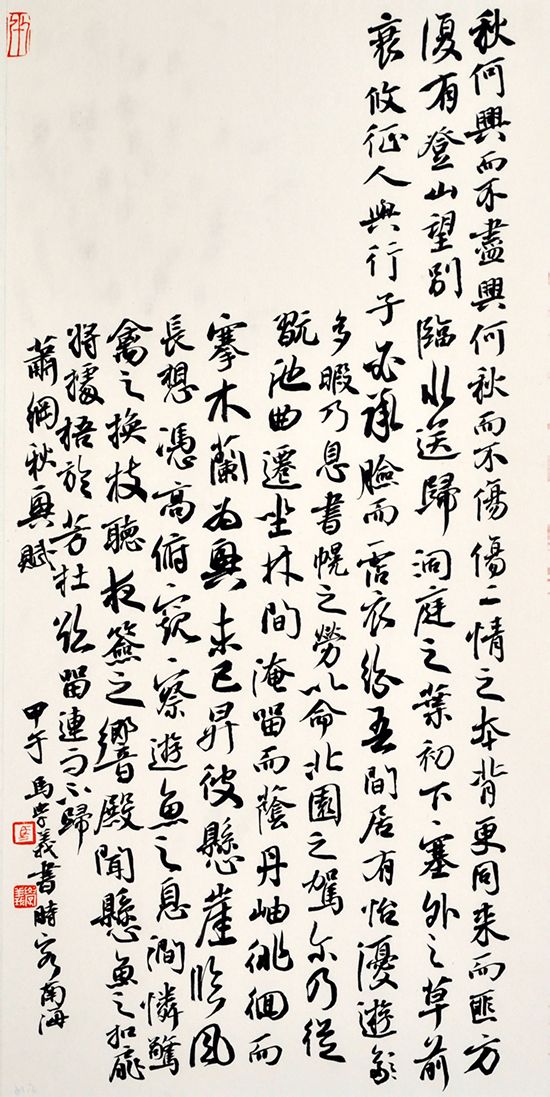 秋何興而不盡興何秋而不傷傷二情之本背更同來而匪方
復有登山望別臨水送歸洞庭之葉初下塞外之草前
衰攸征人與行子必承臉而霑衣紛吾間居有怡優遊
多暇乃息書幌之勞以命北園之駕尔乃從
翫池曲遷坐林間淹留而蔭丹岫徘徊而
搴木蘭為興未已昇彼懸崖臨風
長想憑高俯窺察遊魚之息澗憐驚
禽之換枝聽夜籤之響殿聞懸魚之扣扉
將據梧於芳杜欲留連而不歸
蕭綱秋興賦
甲午馬學義書時客南海